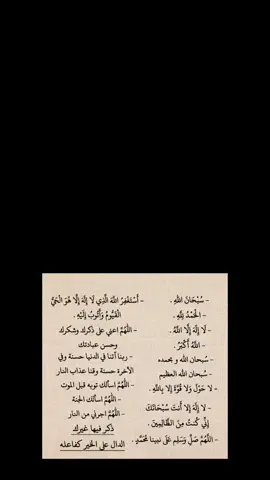 - سُبْحَانَ اللهِ .
- الْحَمْدُ لِلَّهِ .
- لَا إِلَهَ إِلَّا اللَّهُ .
- اللهُ أَكْبَرُ .
- سُبحان الله و بحمده
- سُبحان الله العظيم
- لا حَوْل وَلا قُوَّةَ إلا بِاللَّهِ .
- لا إِلَهَ إِلا أَنتَ سُبْحَانَكَ
إِنِّي كُنتُ مِنَ الظَّالِمِينَ .
- اللَّهُمَّ صَلِّ وَسَلِم عَلَى نَبِينَا مُحَمَّدٍ .
- أَسْتَغْفِرُ اللهَ الَّذِي لَا إِلَهَ إِلَّا هُوَ الْحَيُّ
الْقَيُّومُ وَأَتُوبُ إِلَيْهِ .
- اللَّهُمَّ اعني على ذكرك وشكرك
وحسن عبادتك
- ربنا آتنا في الدنيا حسنة وفي
الآخرة حسنة وقنا عذاب النار
- اللَّهُمَّ اسألك توبه قبل الموت
- اللَّهُمَّ اسألك الجنة
- اللَّهُمَّ اجرني من النار
ذكر فيها غيرك
الدال على الخير كفاعله